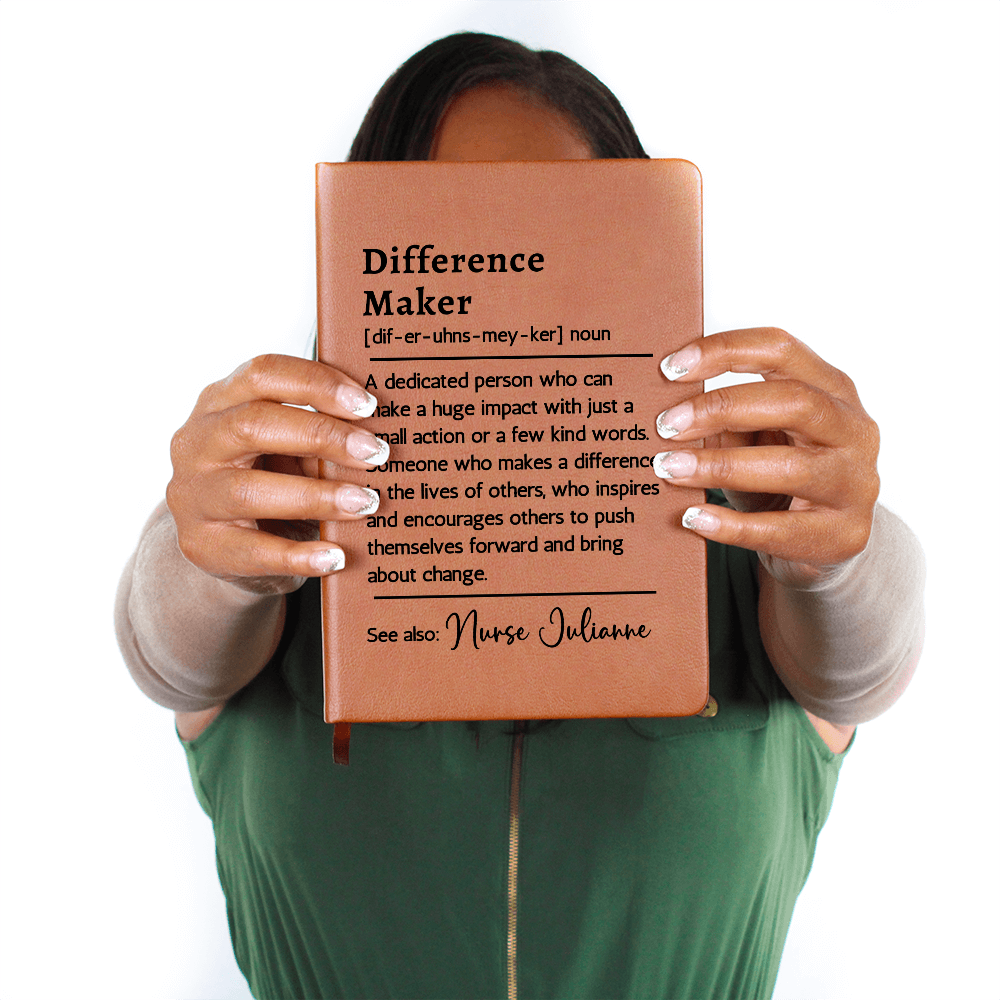 Difference
Maker
[dif-er-uhns-mey-ker] noun
A dedicated person who can
make a huge impact with just a
small action or a few kind words.
Someone who makes a difference
in the lives of others, who inspires
and encourages others to push
themselves forward and bring
about change.
See also: Nurse Julianne